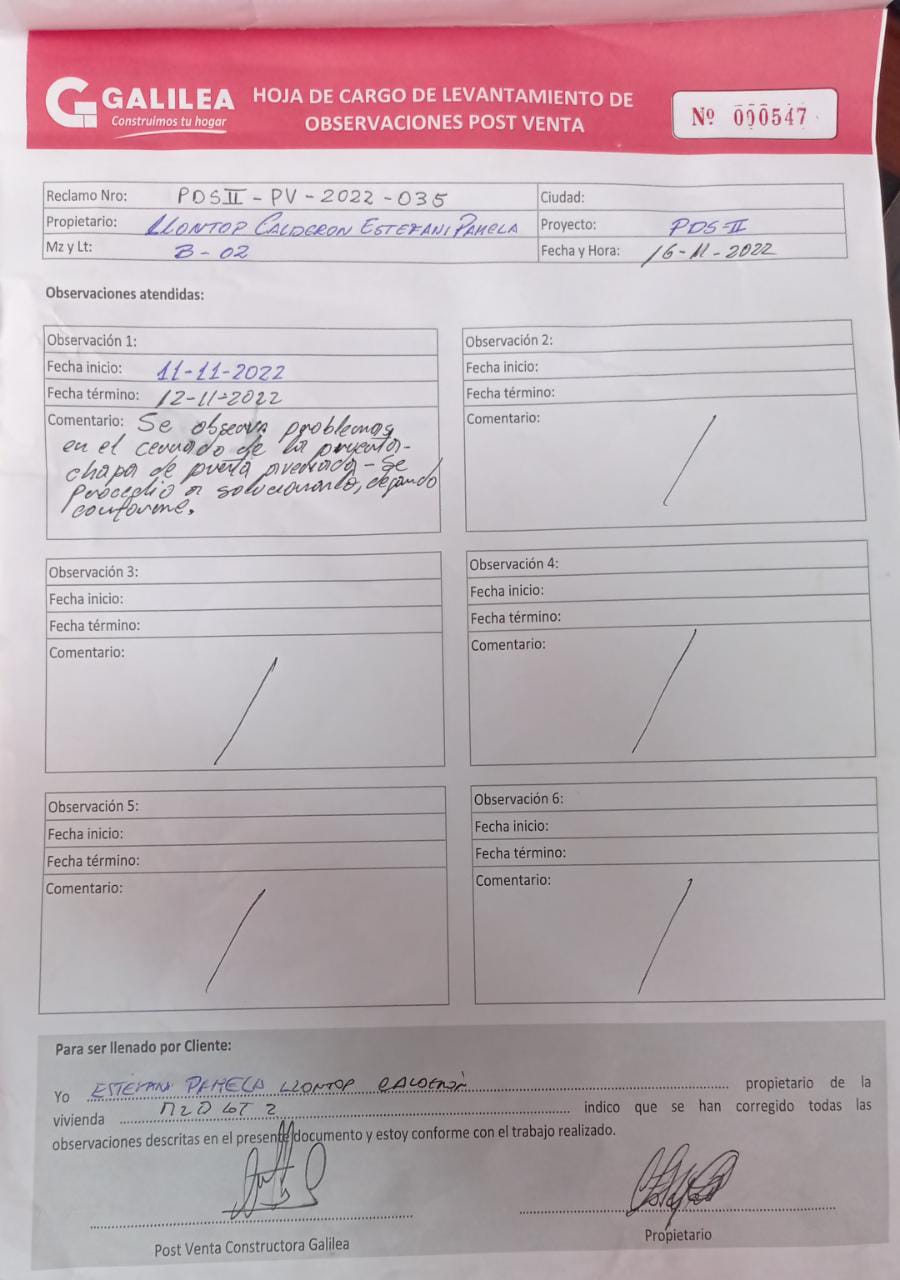 GALILEA
Construimos tu hogar
HOJA DE CARGO DE LEVANTAMIENTO DE
OBSERVACIONES POST VENTA
Nº 000547
Reclamo Nro: PDSII-PV-2022-035
Ciudad:
Propietario: LLONTOP CALDERON ESTEFANI PAMELA
Proyecto: PDS-II
Mz y Lt: B-02
Fecha y Hora: 16-11-2022
Observaciones atendidas:
Observación 1:
Fecha inicio: 11-11-2022
Fecha término: 12-11-2022
Comentario: Se observa problemas
en el cerrado de la
chapa de puerta - se
procedio a solucionarlo, dejando
conforme.
Observación 2:
Fecha inicio:
Fecha término:
Comentario:
Observación 3:
Fecha inicio:
Fecha término:
Comentario:
Observación 4:
Fecha inicio:
Fecha término:
Comentario:
Observación 5:
Fecha inicio:
Fecha término:
Comentario:
Observación 6:
Fecha inicio:
Fecha término:
Comentario:
Para ser llenado por Cliente:
Yo ESTEFANI PAMELA LLONTOP CALDERON propietario de la
vivienda LOT 2 indico que se han corregido todas las
observaciones descritas en el presente documento y estoy conforme con el trabajo realizado.
Post Venta Constructora Galilea
Propietario